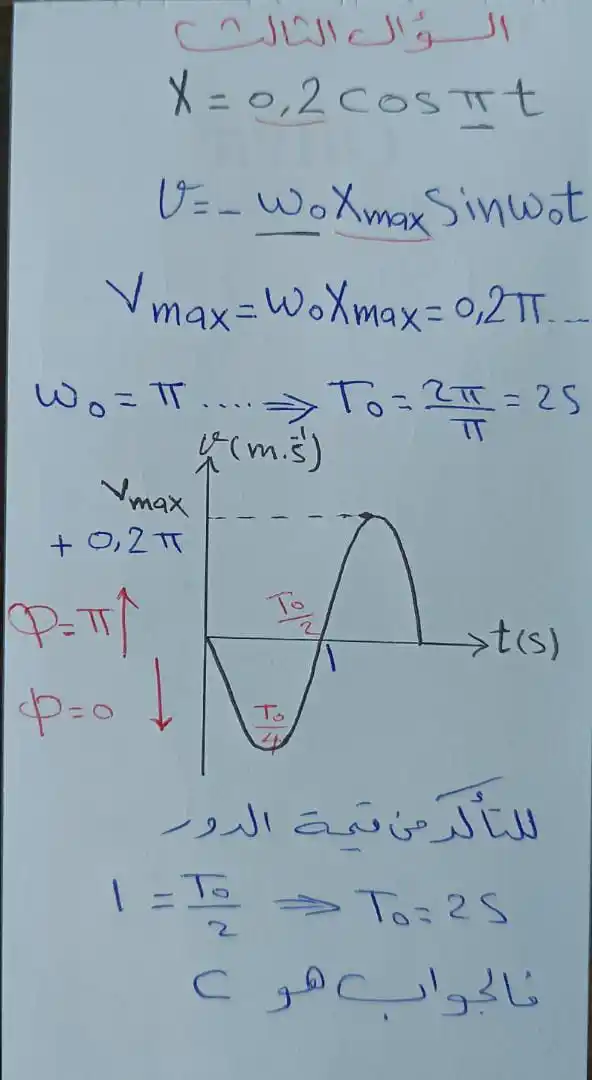 السؤال الثالث
X = 0,2 cos π t
v = - ω₀ Xmax Sin ω₀t
Vmax = ω₀ Xmax = 0,2 π ....
ω₀ = π .... ⇒ T₀ = 2π/π = 2S
v (m.s⁻¹)
Vmax
+ 0,2 π
φ = π ↑
T₀/2
1
t(s)
φ = 0 ↓
T₀/4
للتأكد من قيمة الدور
1 = T₀/2 ⇒ T₀ = 2S
فالجواب هو C